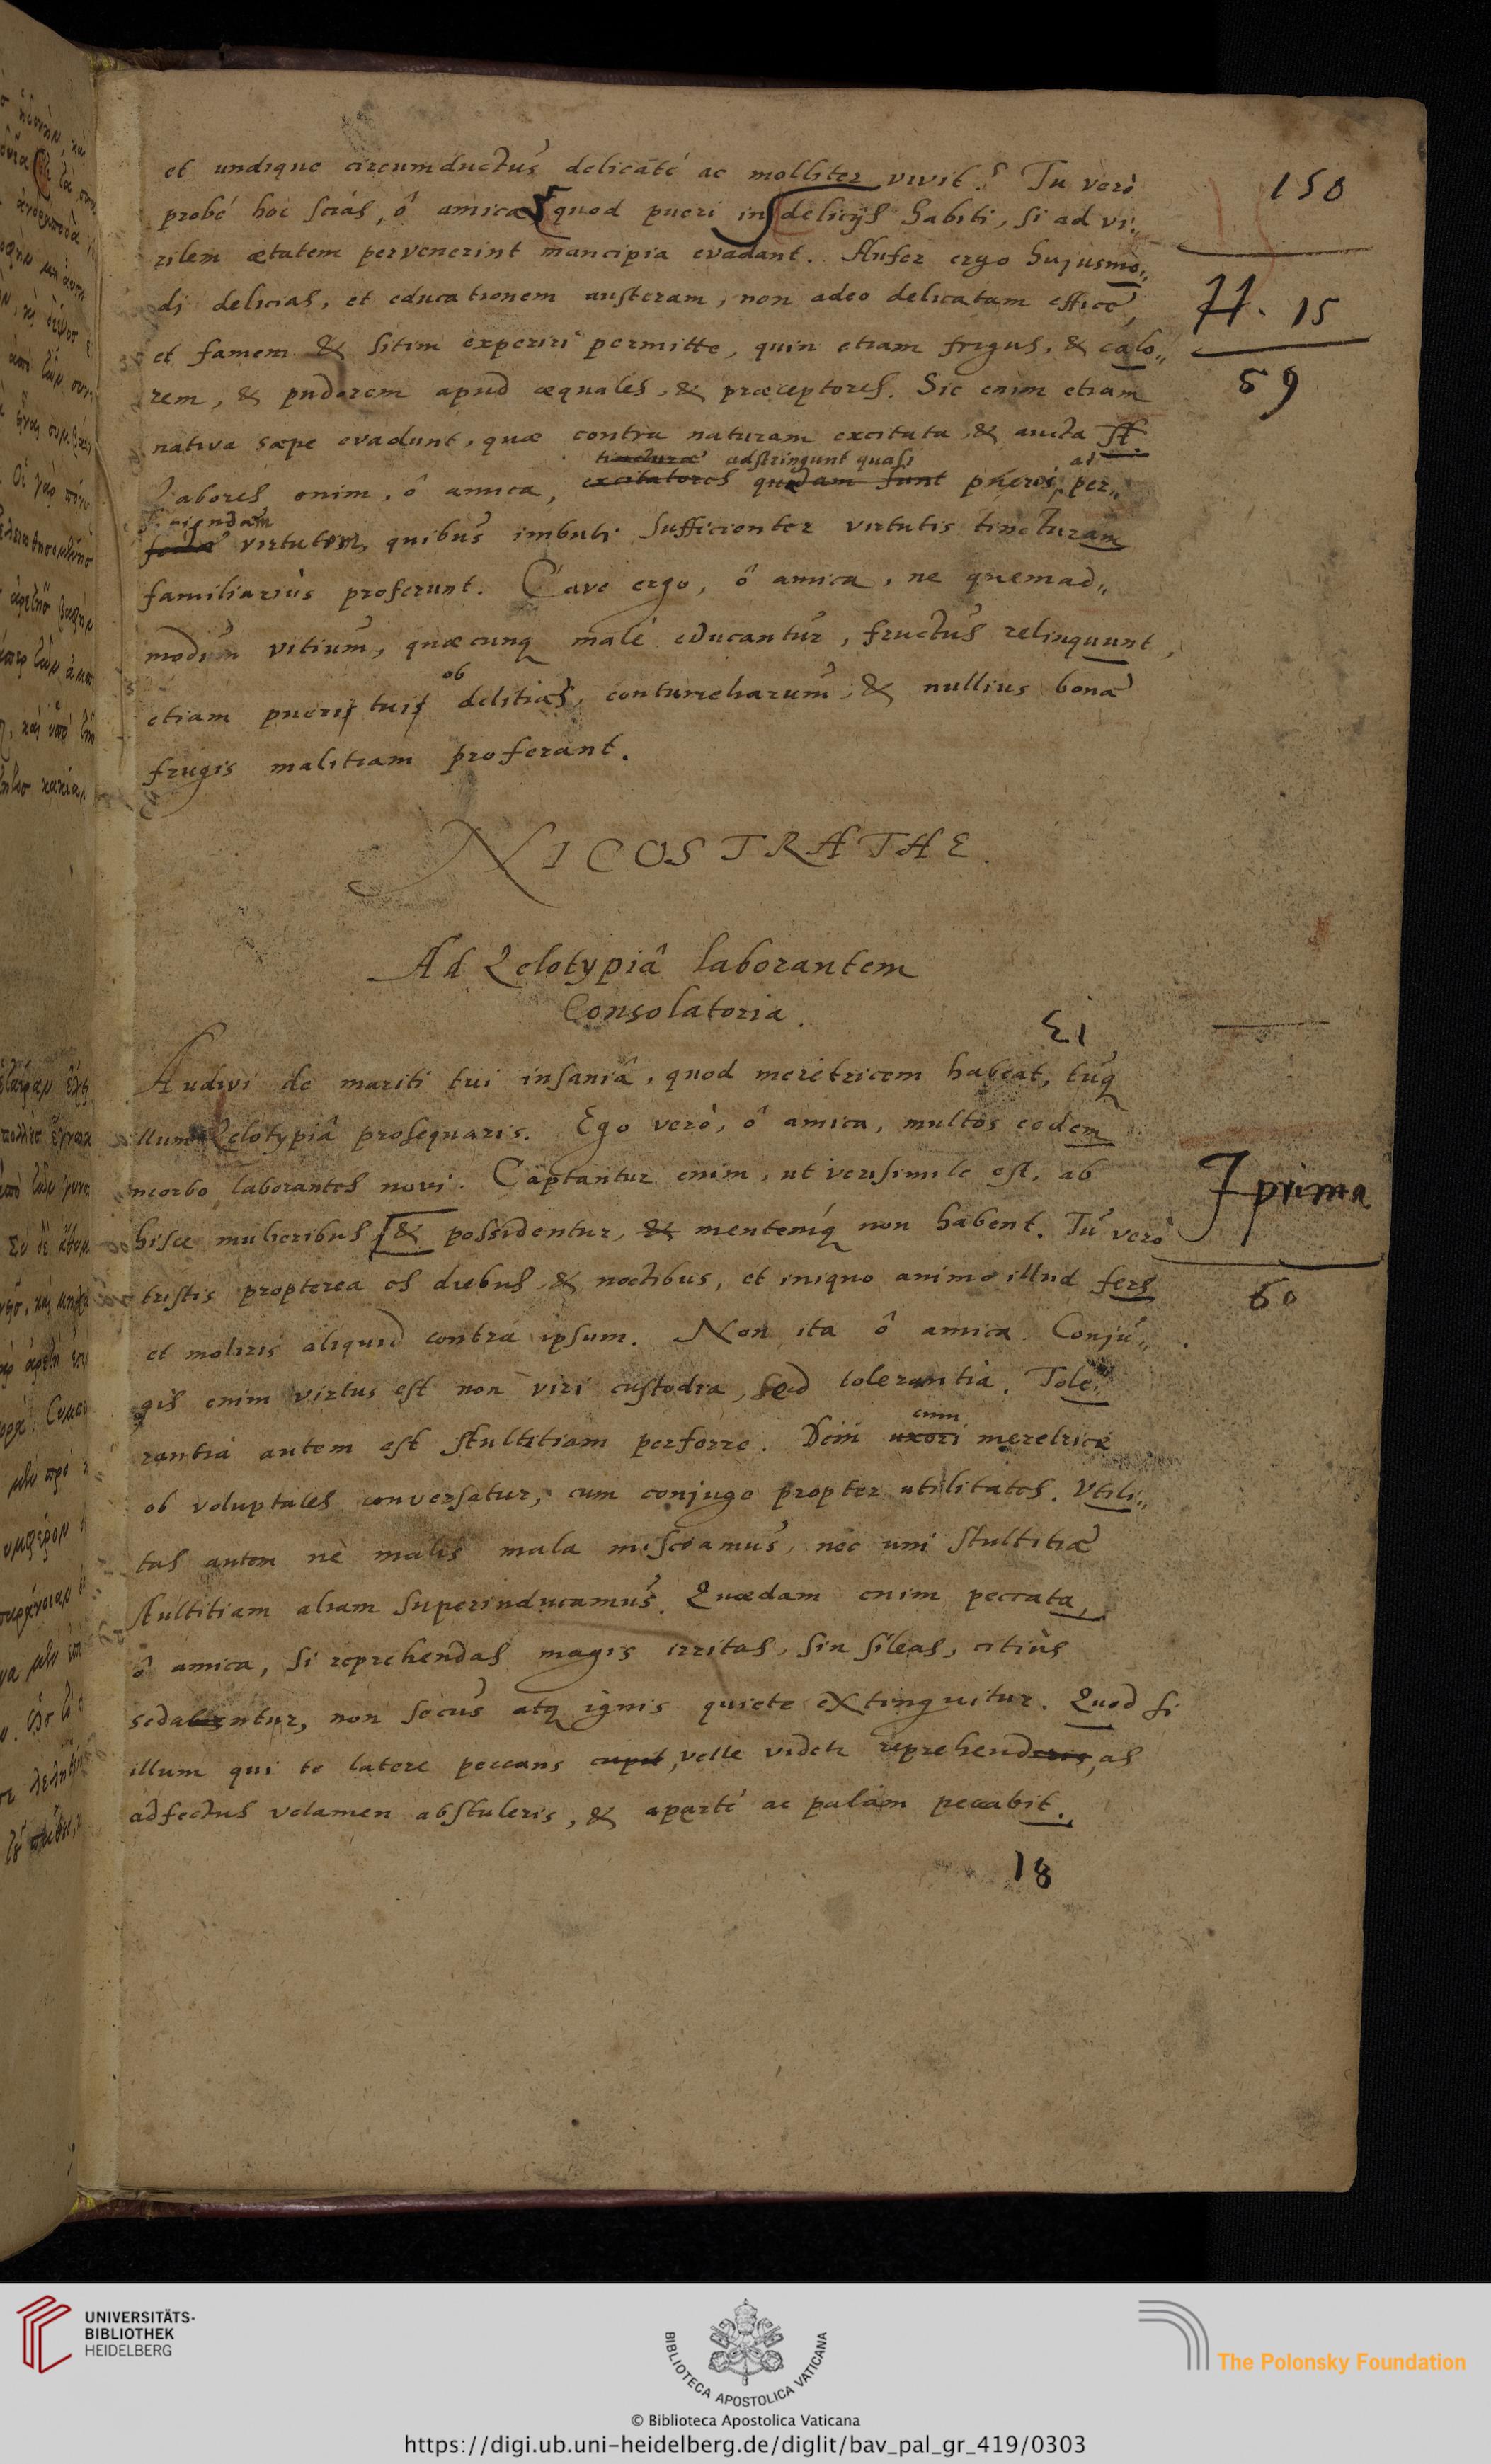 et undique circumductus delicaté ac molliter vivit? Tu verò
probé hoc scias, ô amica quod pueri in delicijs habiti, si ad vi„
rilem ætatem pervenerint mancipia evadant. Aufer ergo hujusmo„
di delicias, et educationem austeram, non adeo delicatam effice,
et famem & sitim experiri permitte, quin etiam frigus, & calo„
rem, & pudorem apud æquales, & præceptores. Sic enim etiam
nativa sæpe evadunt, quæ contra naturam excitata & aucta st.
tincturæ adstringunt quasi ad
Labores enim, ô amica, excitatores quædam sunt pueris, per„
ficiendam
virtutem, quibus imbuti sufficienter virtutis tincturam
familiariùs proferunt. Cave ergo, ô amica, ne quemad„
modum vitium, quæcunq malé educantur, fructus relinquunt,
ob
etiam pueris tuis delitias, contumeliarum, & nullius bonæ
frugis malitiam proferant.
150
H. 15
59
NICOSTRATHE.
Ad Zelotypiâ laborantem
Consolatoria.
Audivi de mariti tui insaniâ, quod meretricem habeat, tuq
illum Zelotypiâ prosequaris. Ego verò, ô amica, multos eodem
morbo laborantes novi. Captantur enim, ut verisimile est, ab
hisce mulieribus & possidentur, & mentemq non habent. Tu verò
tristis propterea es diebus & noctibus, et iniquo animo illud fers
et moliris aliquid contra ipsum. Non ita ô amica. Conju„
gis enim virtus est non viri custodia, sed tolerantia. Tole„
rantia autem est stultitiam perferre. Dein uxori meretrice
cum
ob voluptates conversatur, cum conjuge propter utilitates. Utili„
tas autem nè malis mala misceamus, nec uni stultitiæ
stultitiam aliam superinducamus. Quædam enim peccata,
ô amica, si reprehendas magis irritas, sin sileas, citiùs
sedabuntur, non secus atq ignis quiete extinguitur. Quod si
illum qui te latere peccans cupit, velle videtr reprehenderis, as
adfectus velamen abstuleris, & aperté ac palam peccabit.
I prima
60
18
UNIVERSITÄTS-
BIBLIOTHEK
HEIDELBERG
BIBLIOTECA APOSTOLICA VATICANA
The Polonsky Foundation
© Biblioteca Apostolica Vaticana
https://digi.ub.uni-heidelberg.de/diglit/bav_pal_gr_419/0303